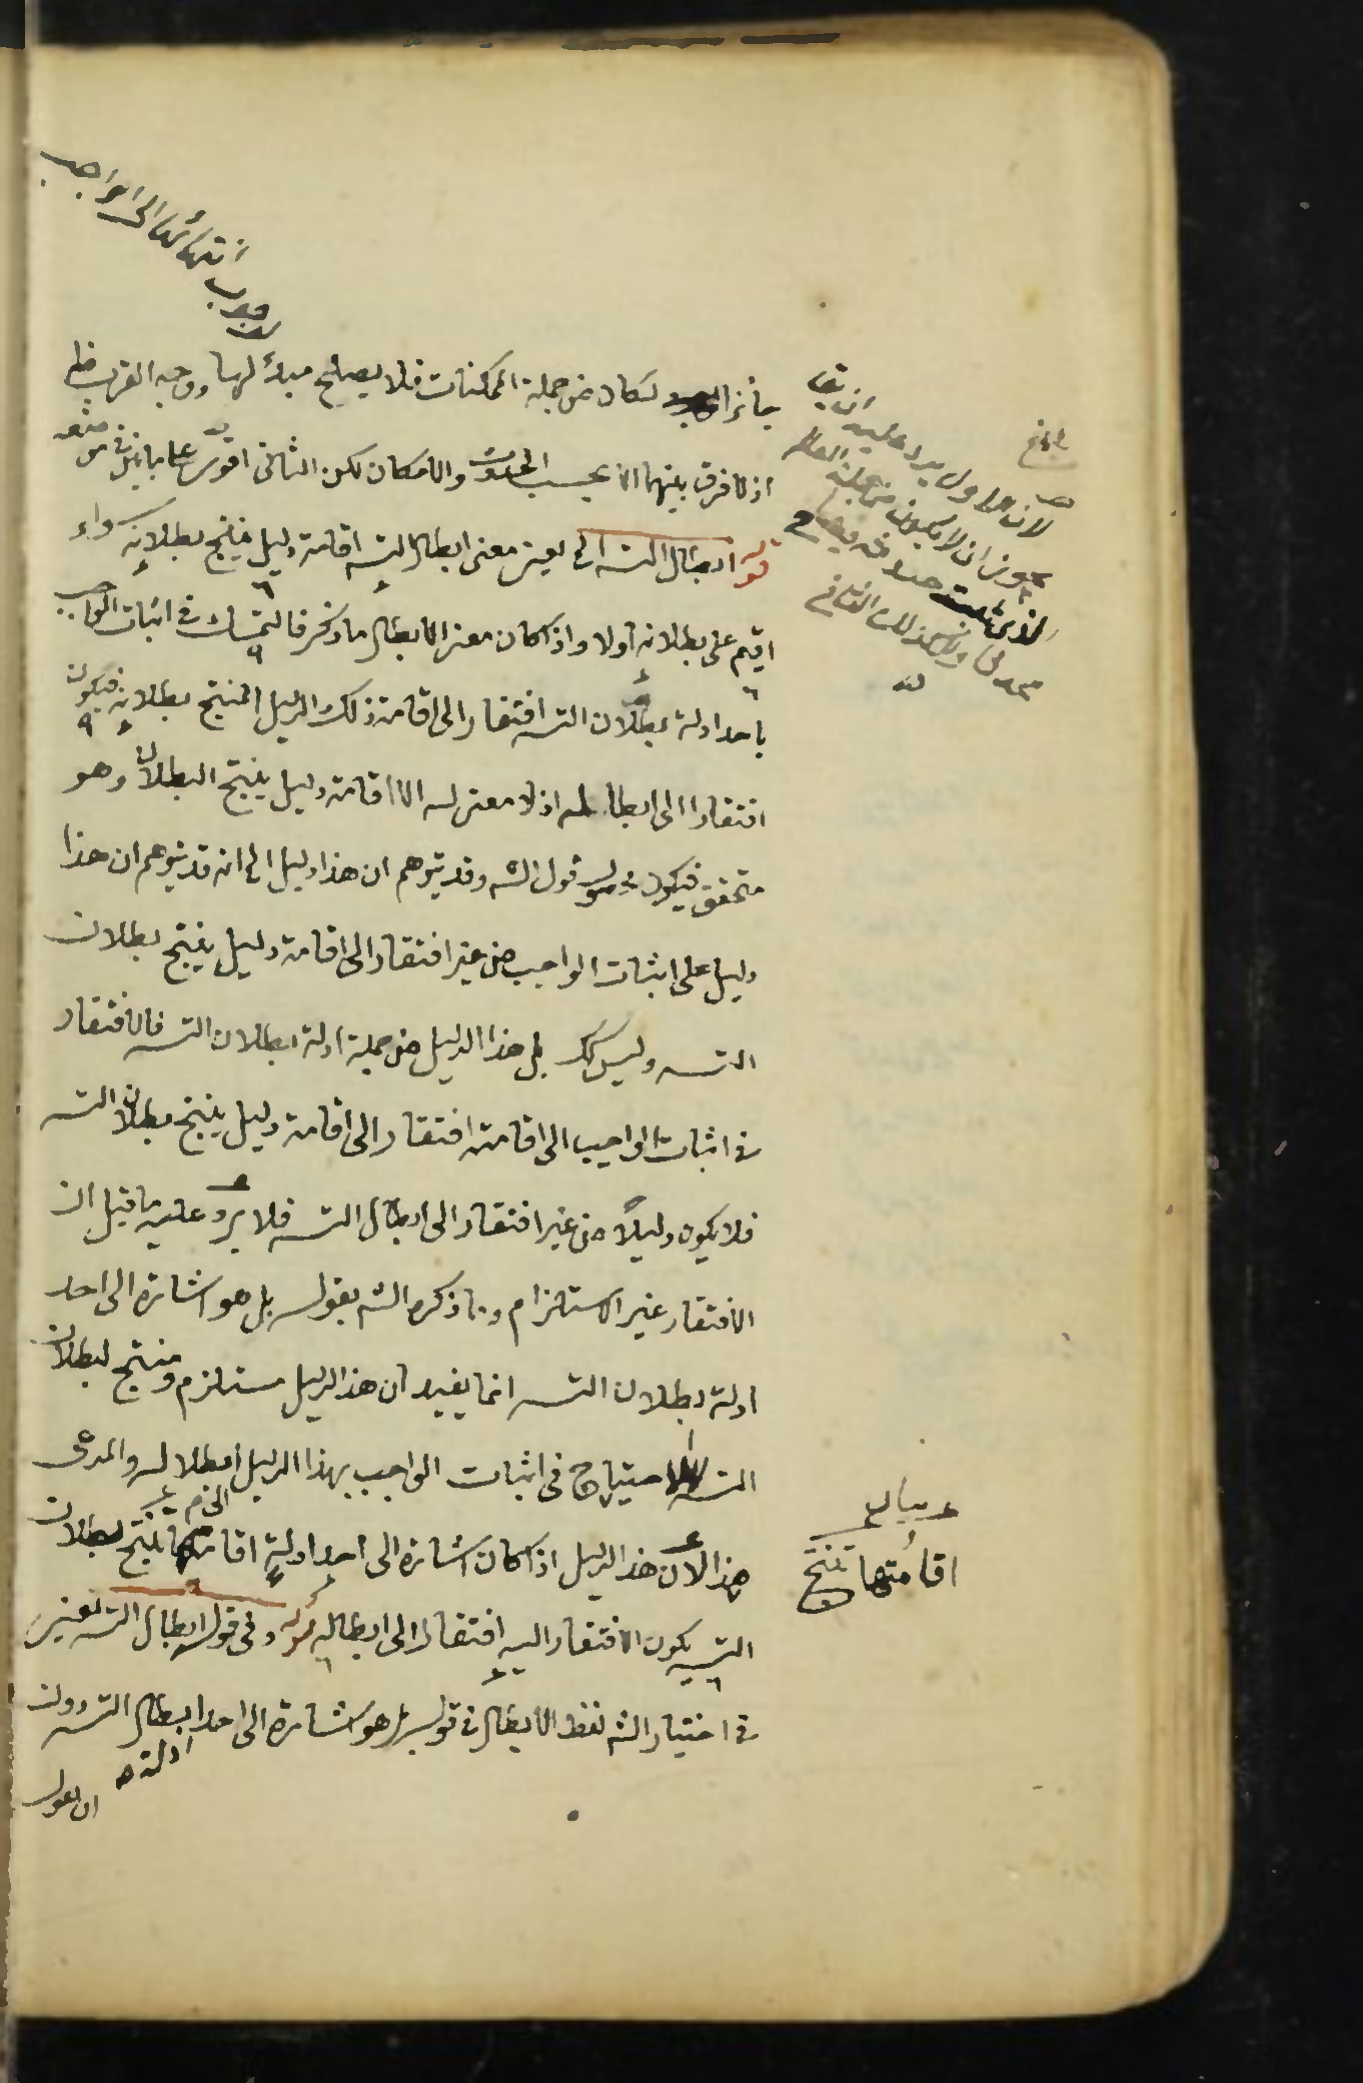 لوجوب انتهائها الى الواجب
جائز الوجود لكان من جملة الممكنات فلا يصلح مبدأ لها ووجه القرب ظ
اذ لا فرق بينهما الا بحسب الحدوث والامكان لكن الثانى اقوى
قوله ابطال التسه الخ يعنى معنى ابطال التسه اقامة دليل ينتج بطلانه سواء
اقيم على بطلانه اولا واذا كان معنى الابطال ما ذكر فالتمسك فى اثبات الواجب
باحد ادلة بطلان التسه افتقار الى اقامة ذلك الدليل المنتج بطلانه فيكون
افتقارا الى ابطاله اذ لا معنى له الا اقامة دليل ينتج البطلان وهو
متحقق فيكون قول الشه وقد يتوهم ان هذا دليل الخ انه قد يتوهم ان هذا
دليل على اثبات الواجب من غير افتقار الى اقامة دليل ينتج بطلان
التسه وليس كك بل هذا الدليل من جملة ادلة بطلان التسه فالافتقار
فى اثبات الواجب الى اقامته افتقار الى اقامة دليل ينتج بطلان التسه
فلا يكون دليلاً من غير افتقار الى ابطال التسه فلا يرد عليه ما قيل ان
الافتقار غير الاستلزام وما ذكره الشه بقوله بل هو اشارة الى احد
ادلة بطلان التسه انما يفيد ان هذا الدليل مستلزم ومنتج لبطلان
التسه لا احتياج فى اثبات الواجب بهذا الدليل ابطاله والمدعى
هذا لان هذا الدليل اذا كان اشارة الى احد ادلة اقامتها تنتج بطلان
التسه يكون الافتقار اليه افتقارا الى ابطاله قوله وفى قوله ابطال التسه يعنى
فى اختيار الشه لفظ الابطال فى قوله بل هو اشارة الى احد ادلة ابطال التسه دون
ان يقول
لان الاول يرد عليه ان يقا
يجوز ان لا يكون من جملة العالم
الذى ثبت حدوثه
بيان
اقامتها تنتج